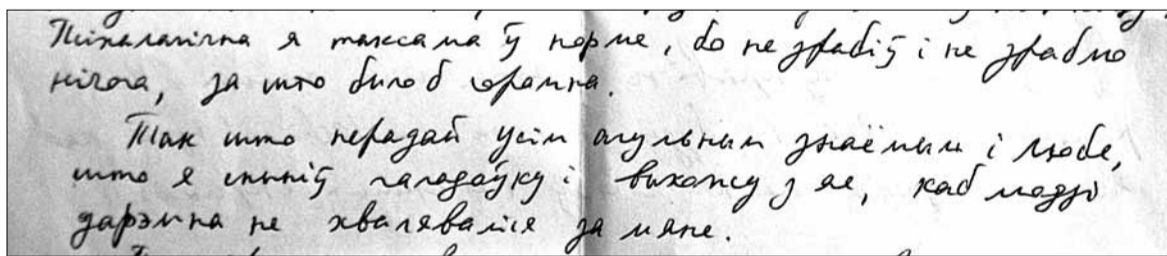 Псіхалагічна я таксама ў норме, бо не зрабіў і не зраблю
нічога, за што было б сорамна.
Так што перадай усім агульным знаёмым і Любе,
што я спыніў галадоўку і выходжу з яе, каб людзі
дарэмна не хваляваліся за мяне.